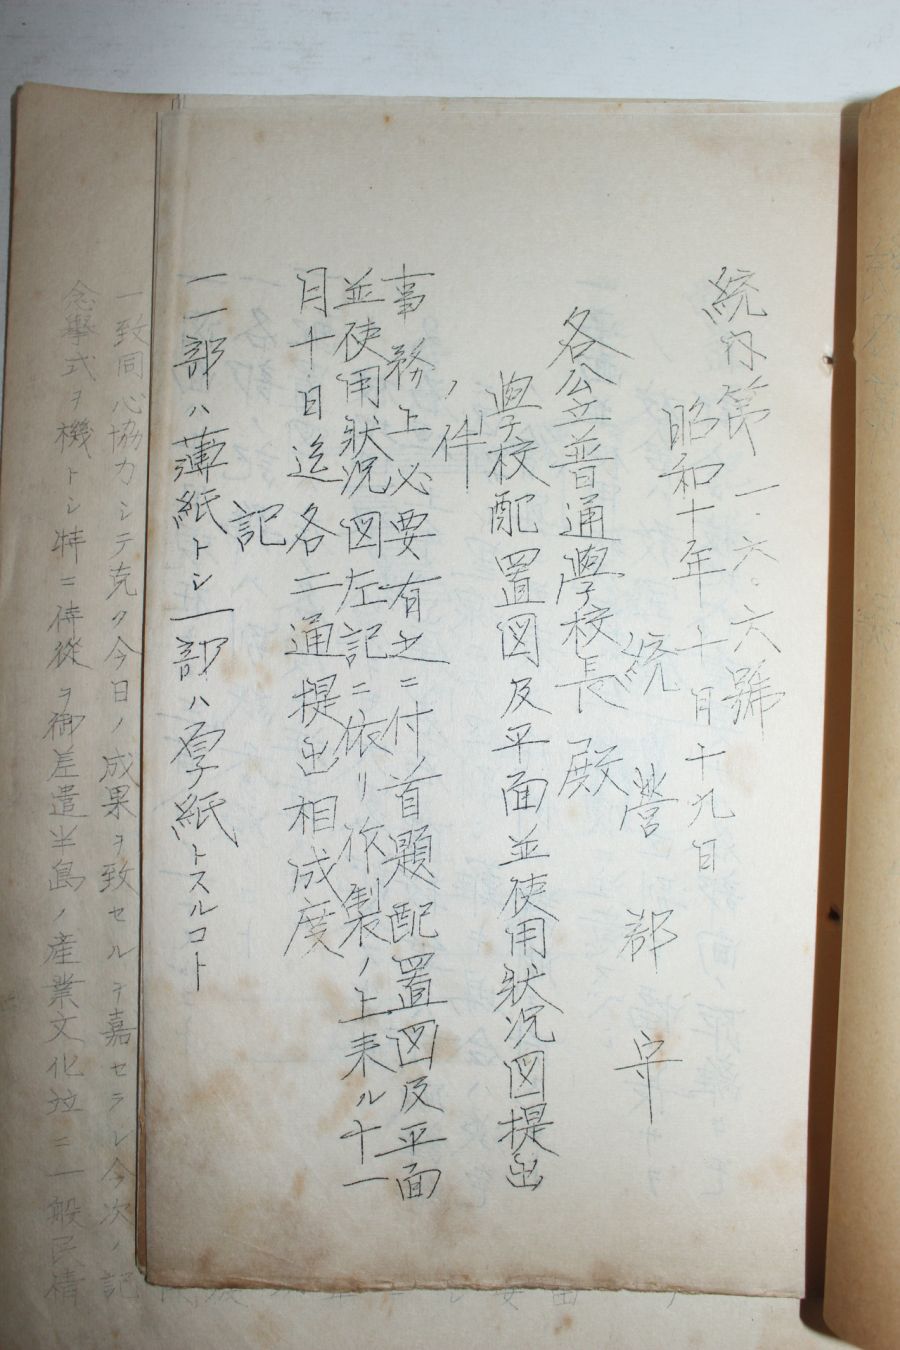 統内第一六六號
昭和十年十月十九日
統營郡守
各公立普通學校長殿
學校配置図及平面並使用狀況図提出
ノ件
事務上必要有之ニ付首題配置図及平面
並使用狀況図左記ニ依リ作製ノ上来ル十一
月十日迄各二通提出相成度
記
一一部ハ薄紙トシ一部ハ厚紙トスルコト
一致同心協力シテ克ク今日ノ成果ヲ致セルヲ嘉セラレ今次ノ記
念擧式ヲ機トシ特ニ侍從ヲ御差遣半島ノ産業文化竝ニ一般民情